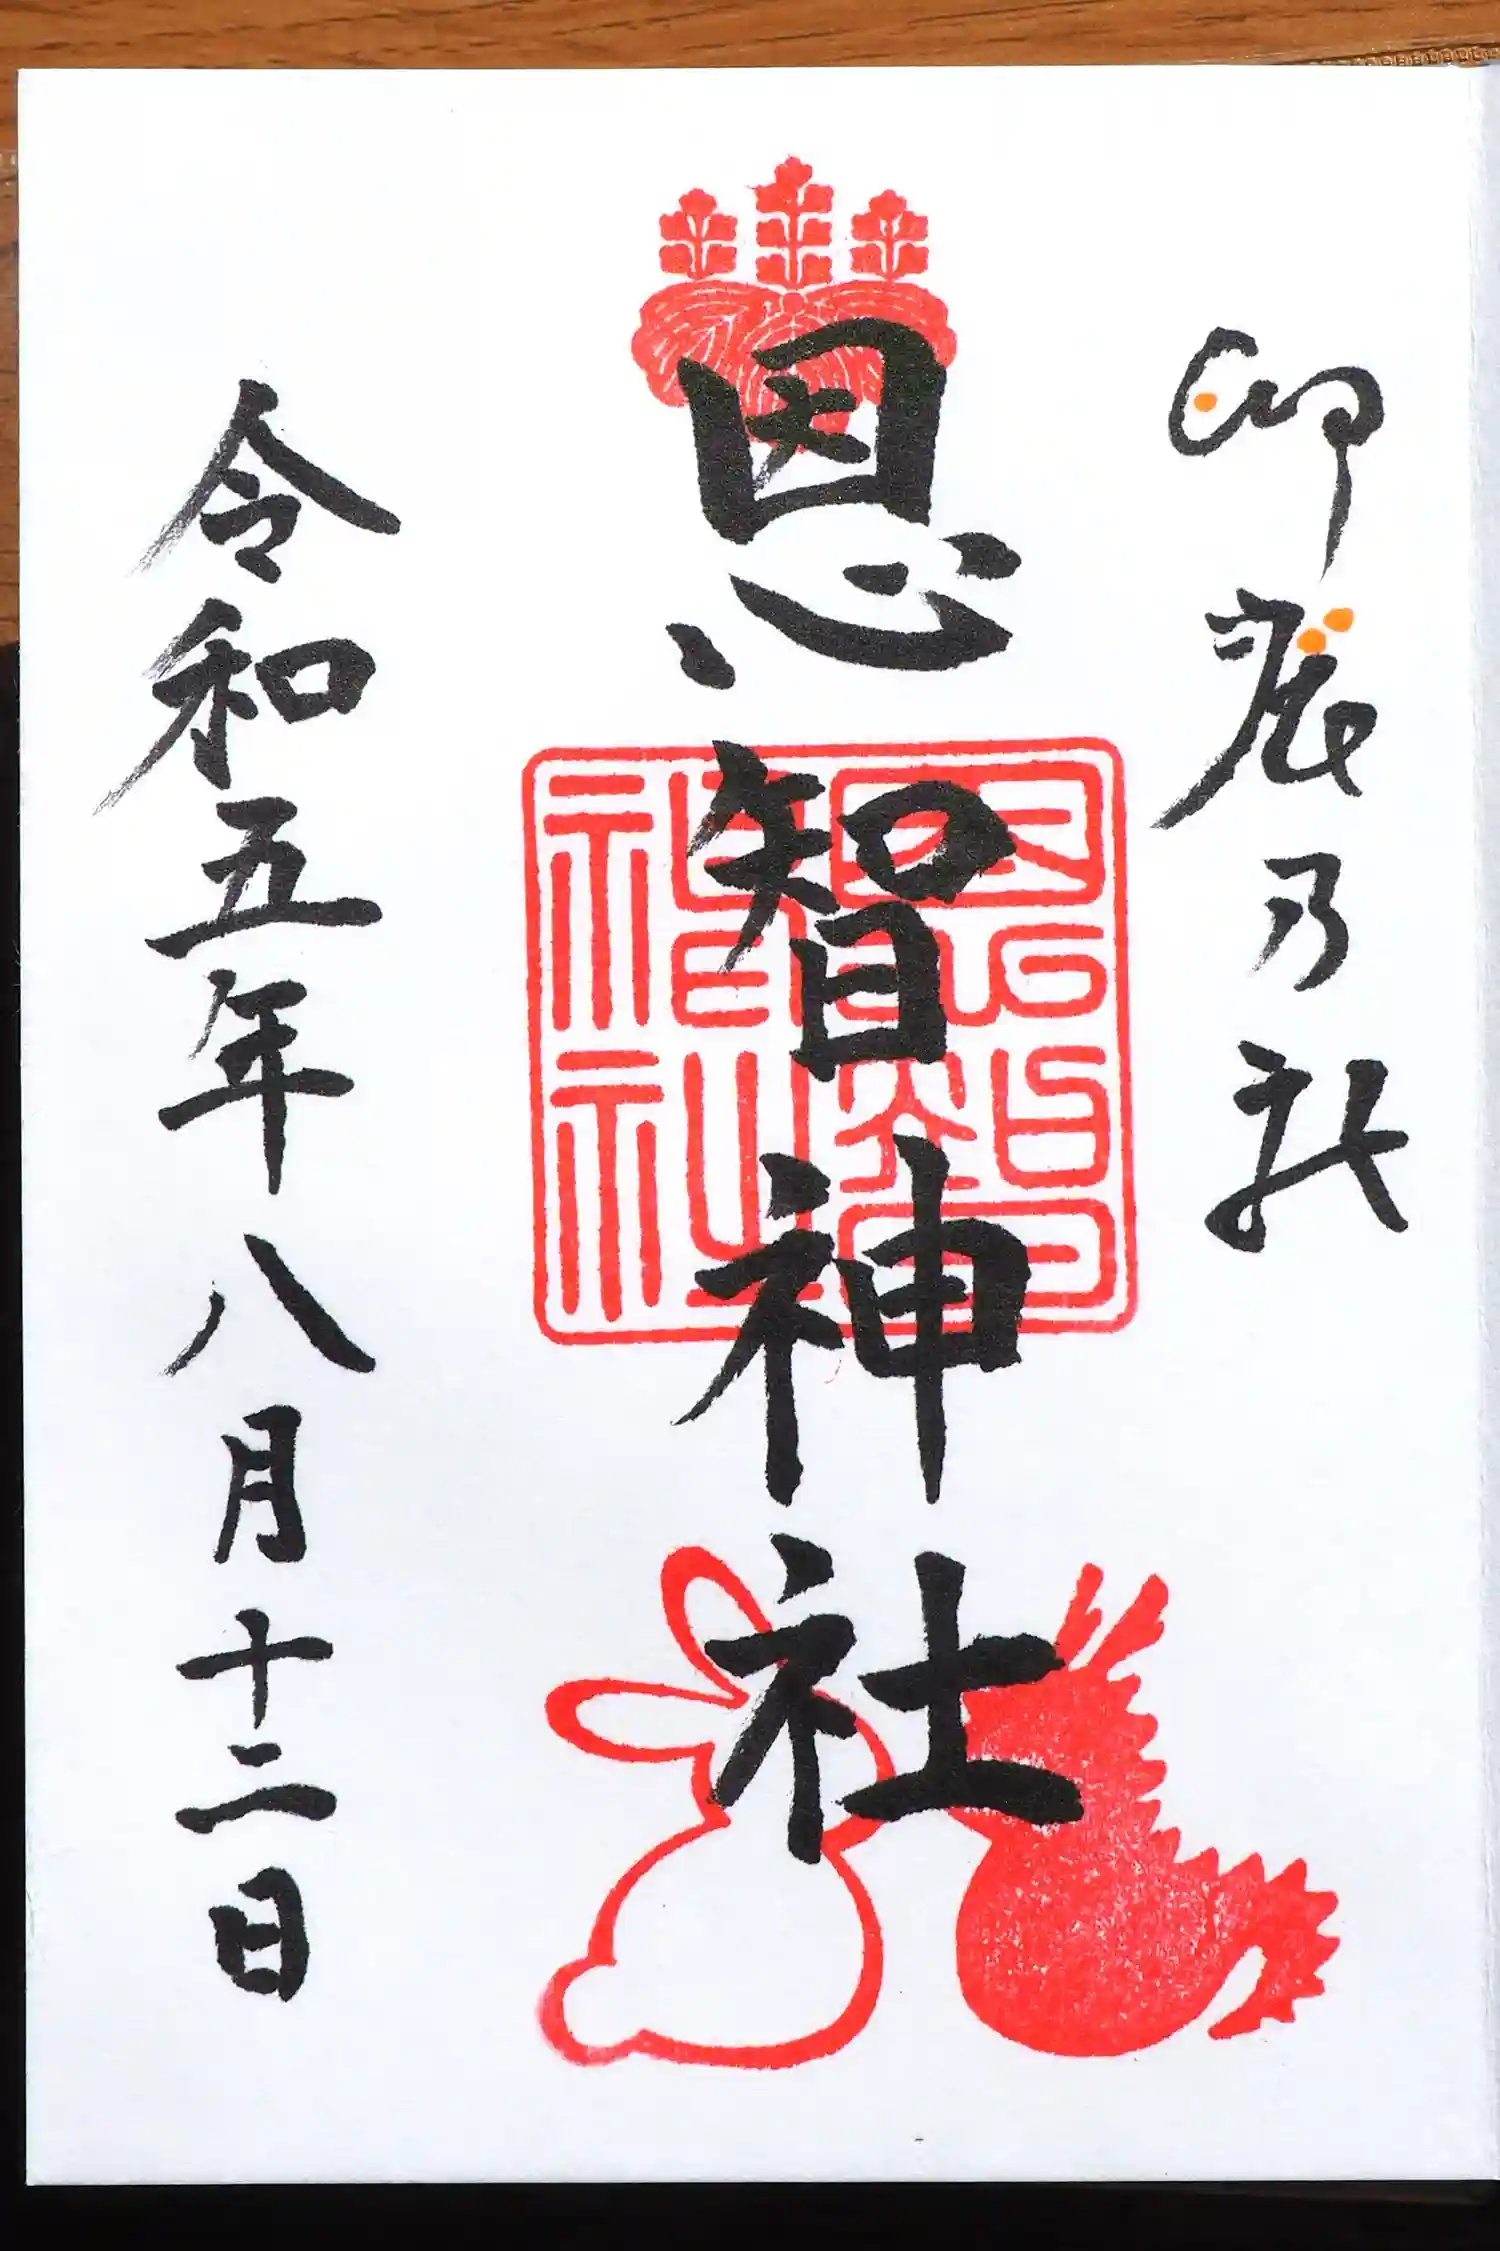 卯辰乃社
恩智神社
恩智神社
令和五年八月十二日